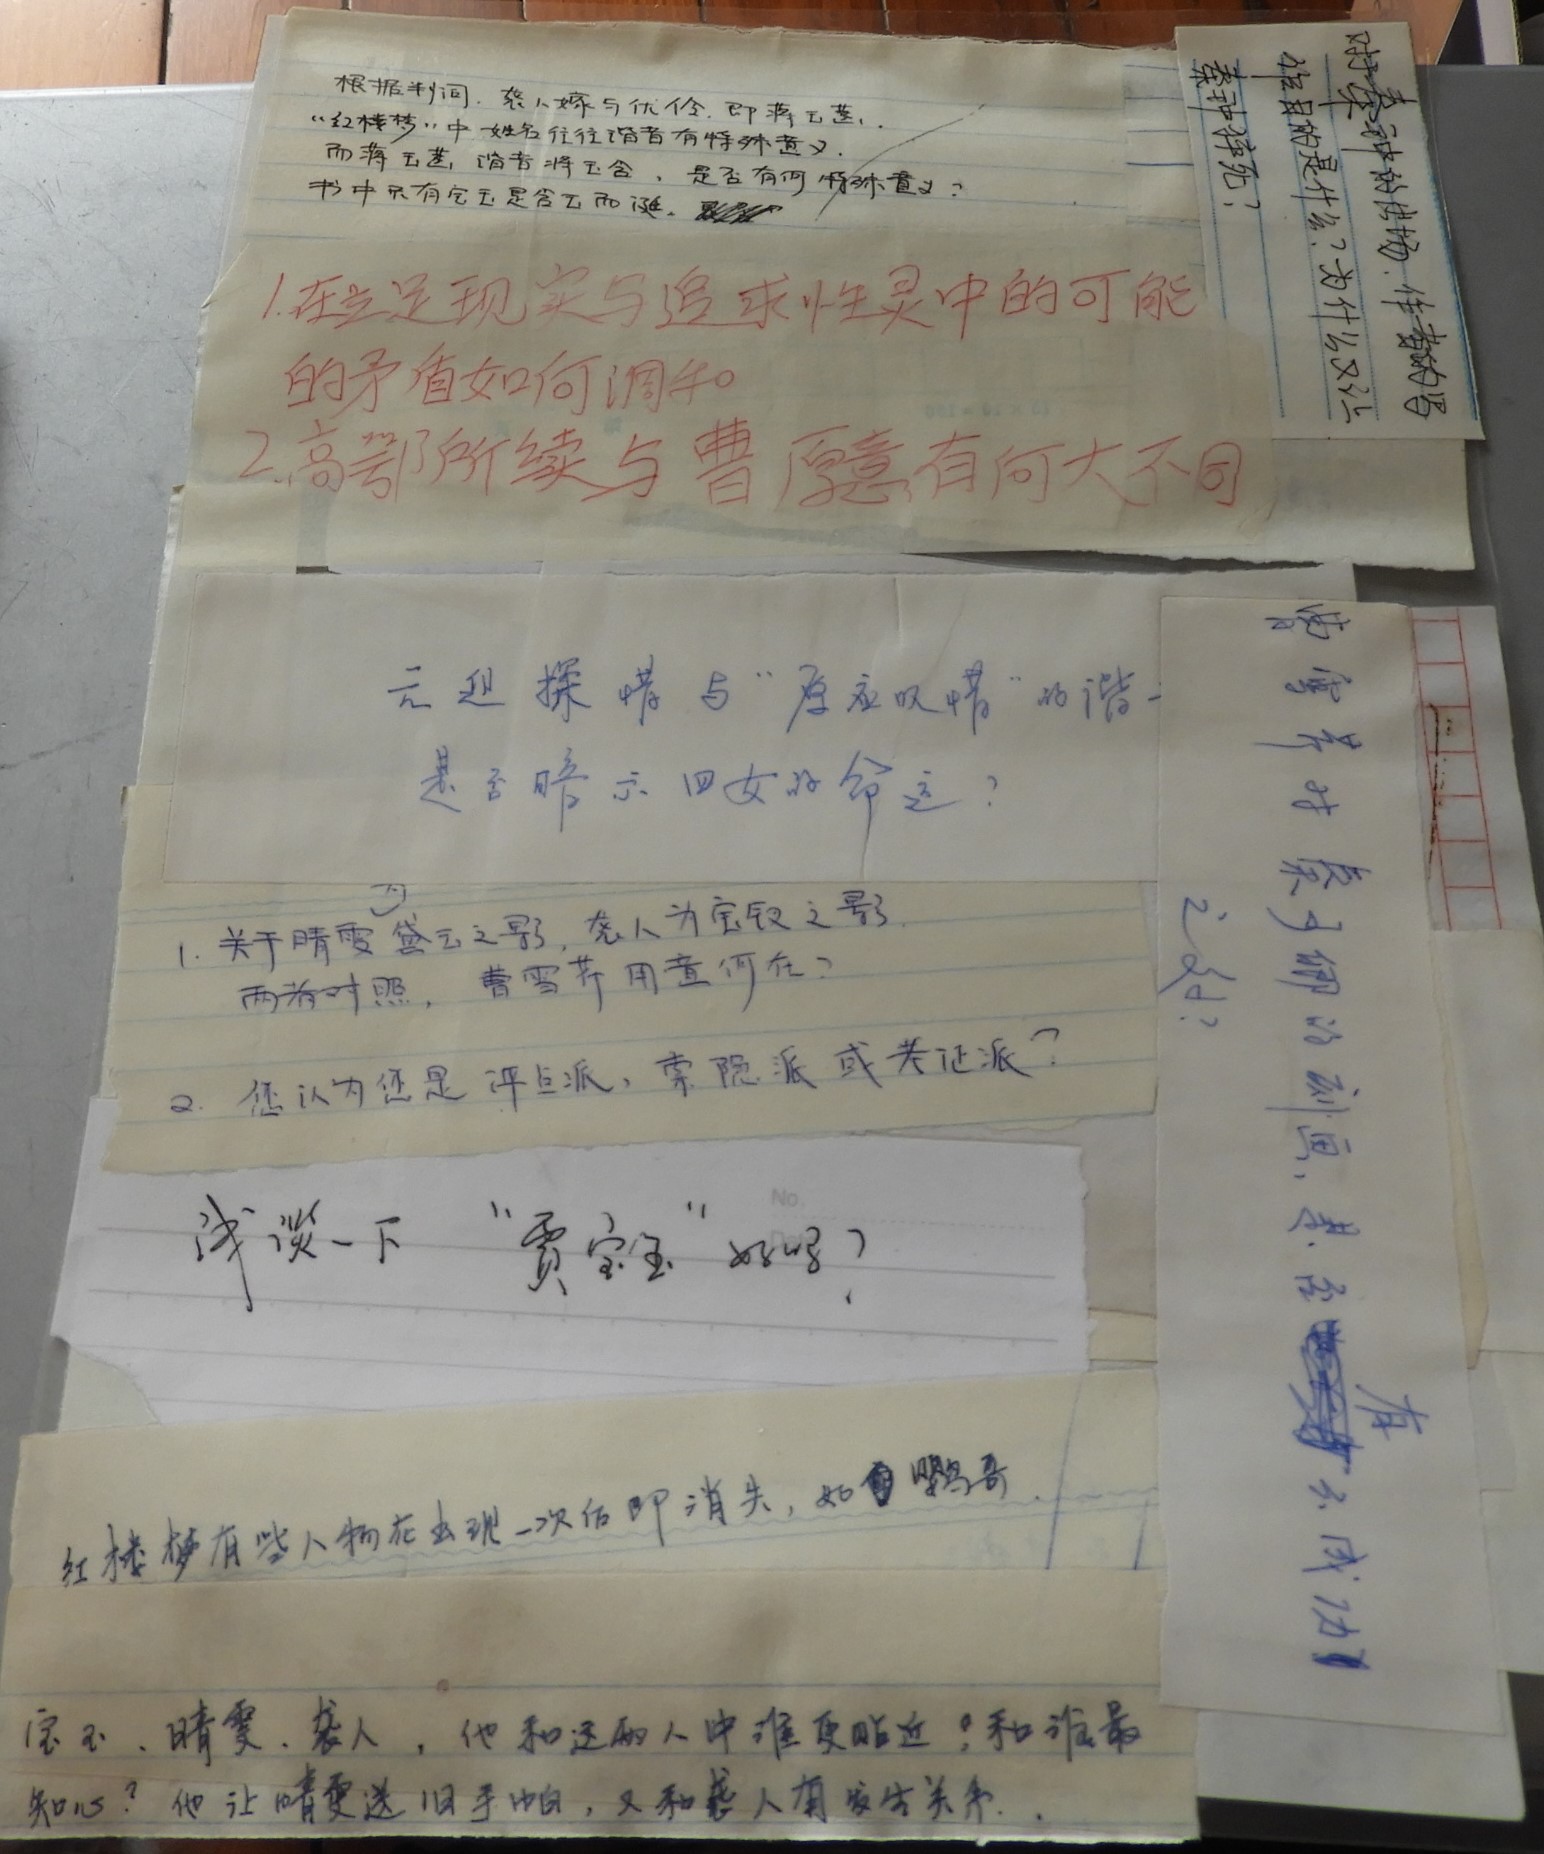 根据判词，袭人嫁与优伶，即蒋玉菡，
“红楼梦”中姓名往往谐音有特殊意义，
而蒋玉菡谐音将玉含，是否有何特殊意义？
书中只有宝玉是含玉而诞。
对秦钟的出场，作者的写
作目的是什么？为什么又让
秦钟猝死？
1.在立足现实与追求性灵中的可能
的矛盾如何调和。
2.高鹗所续与曹原意有何大不同
元迎探惜与“原应叹惜”的谐
是否暗示四女的命运？
曹雪芹对秦可卿的刻画，是否有不成功
之处？
1. 关于晴雯为黛玉之影，袭人为宝钗之影，
两者对照，曹雪芹用意何在？
2. 您认为您是评点派，索隐派或考证派？
No.
浅谈一下“贾宝玉”好吗？
红楼梦有些人物在出现一次后即消失，如鹦哥
宝玉、晴雯、袭人，他和这两人中谁更贴近？和谁最
知心？他让晴雯送旧手帕，又和袭人有发生关系．